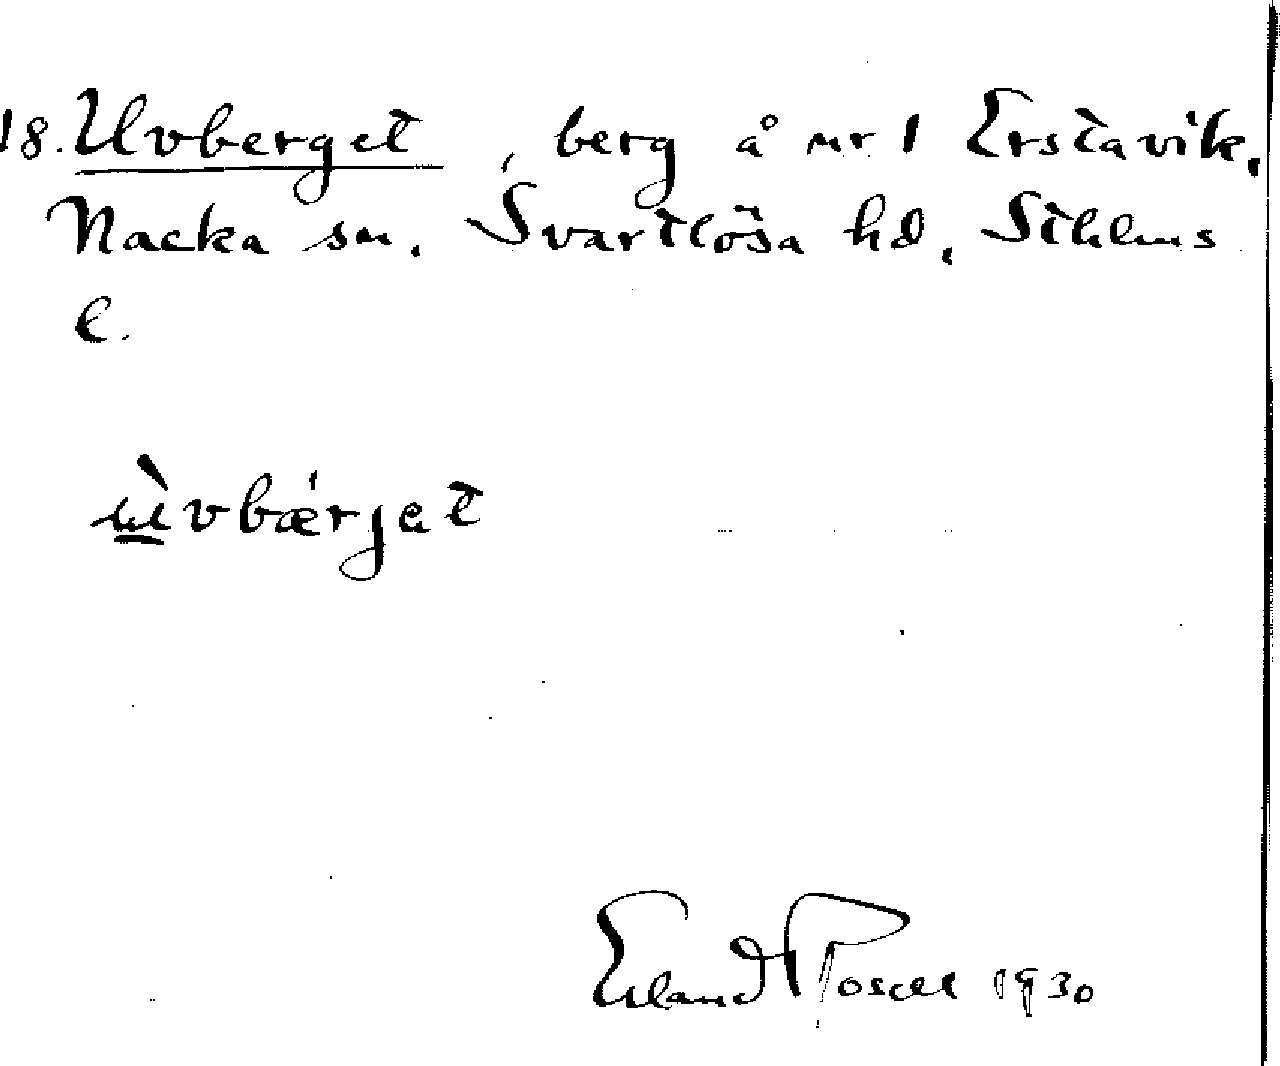 18. Uvberget, berg å nr 1 Erstavik,
Nacka sn. Svartlösa hd, Sthlms
l.
ùvbǽrjet
Erland Rosell 1930